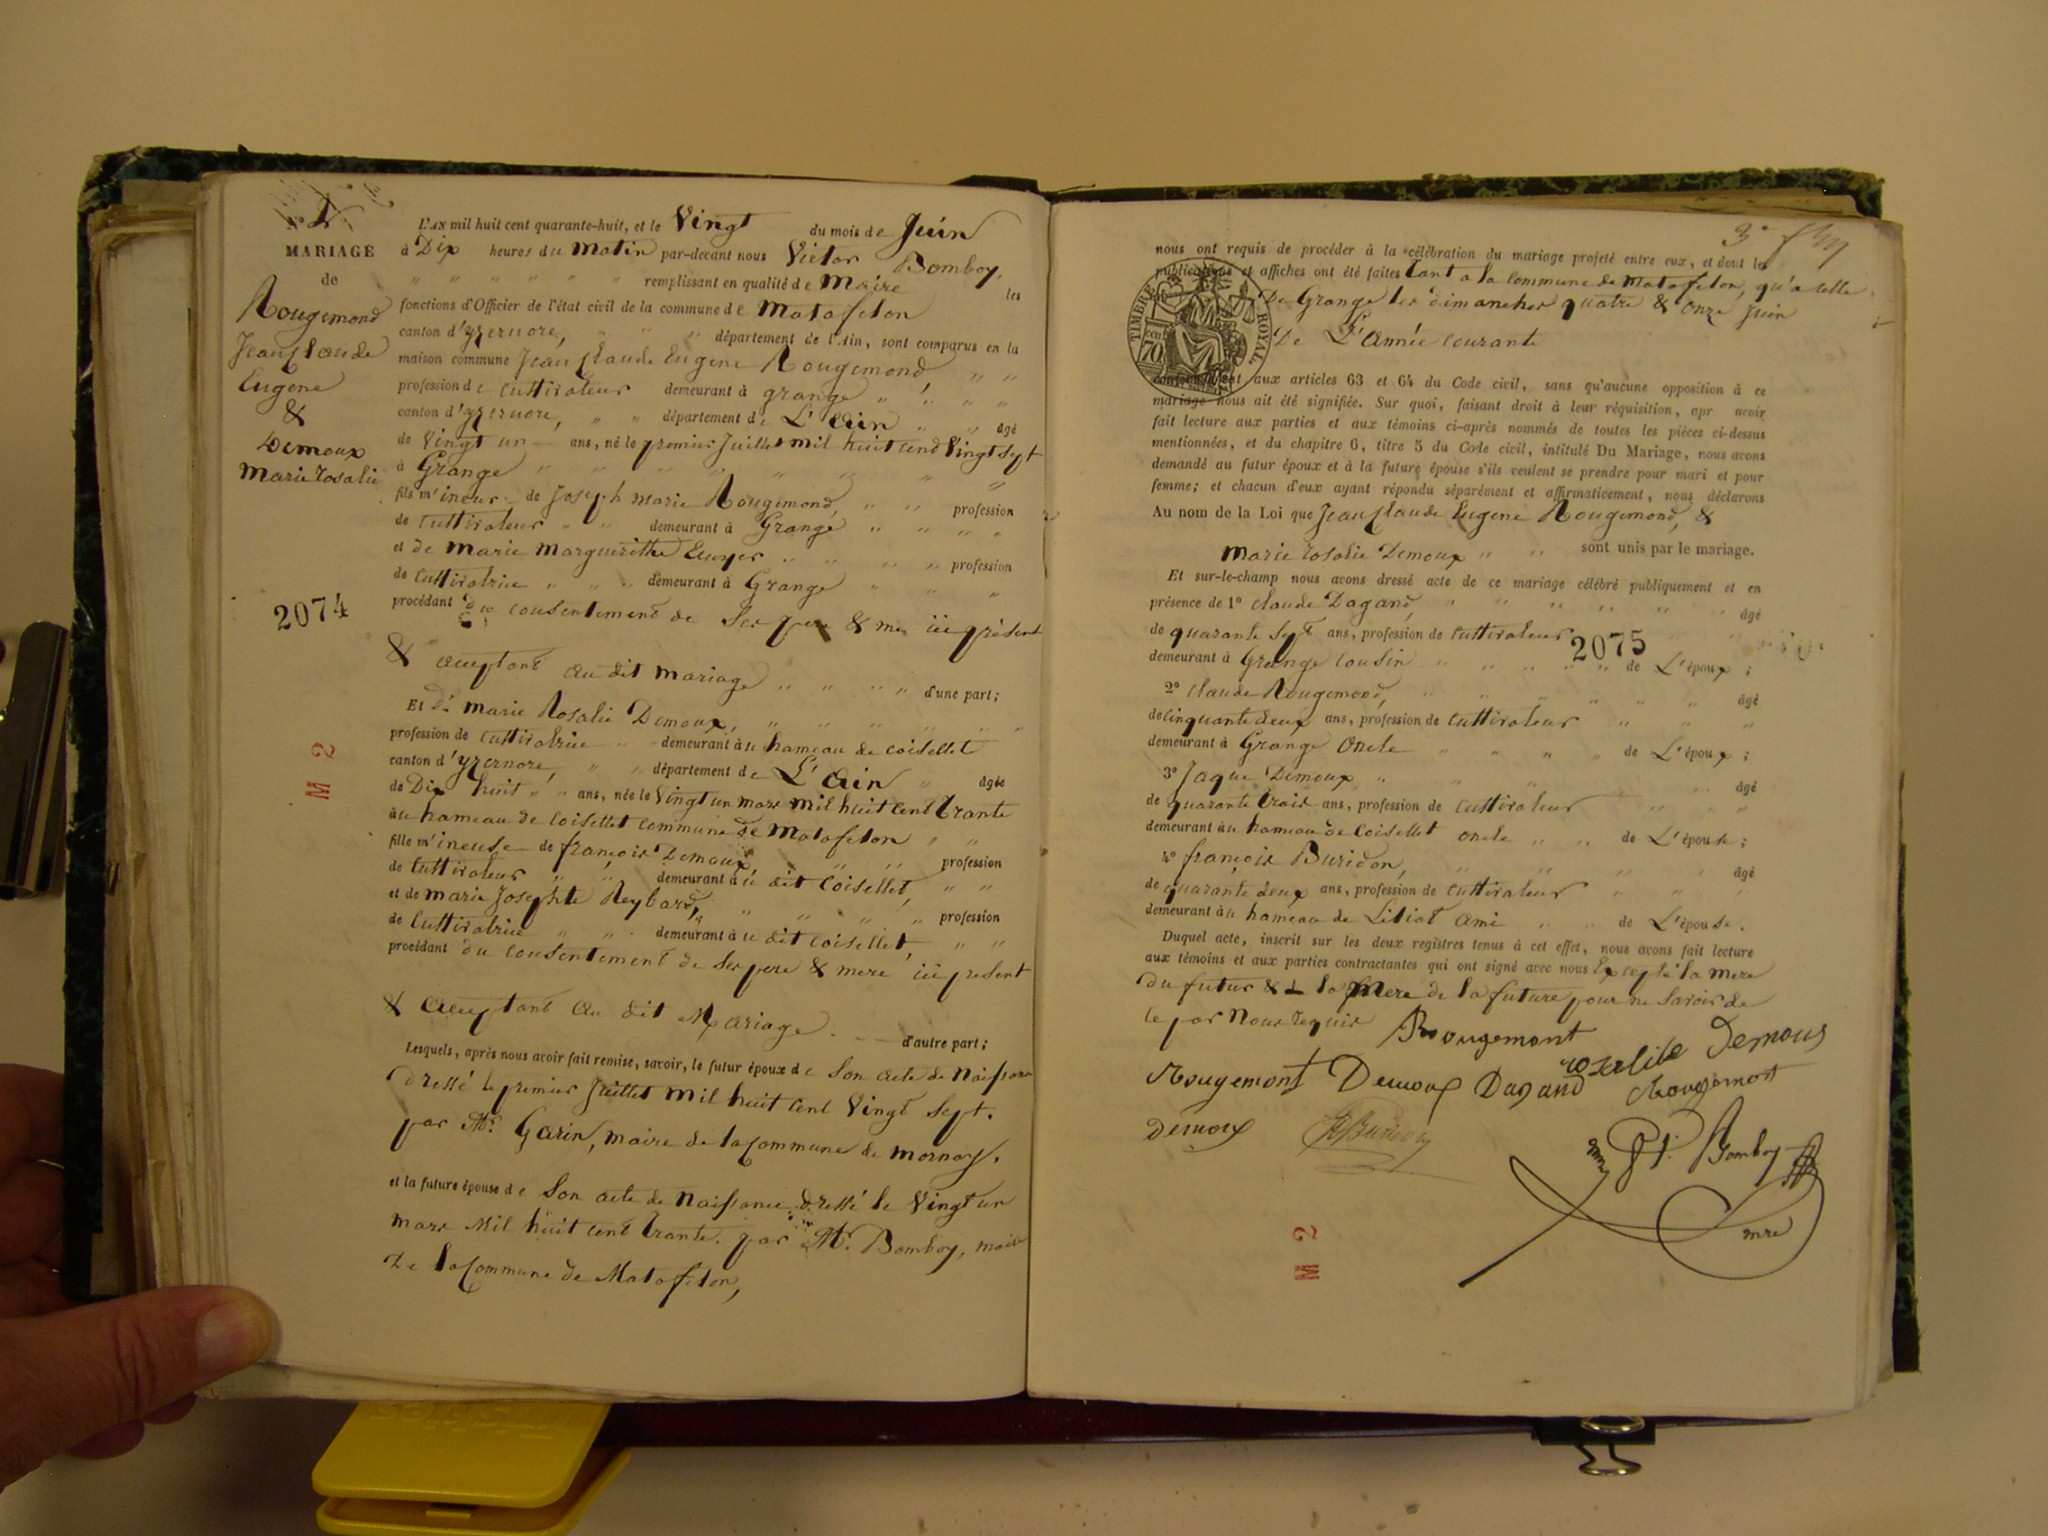 N° 4
MARIAGE
de
Rougemond
Jean Claude
Eugene
&
Demoux
Marie rosalie
2074
M 2
L'AN mil huit cent quarante-huit, et le Vingt du mois de Juin
à Dix heures du matin par-devant nous Victor Bomboy,
" " " " " " remplissant en qualité de Maire les
fonctions d'Officier de l'état civil de la commune de Matafelon
canton d'yzernore, " " " département de l'Ain, sont comparus en la
maison commune Jean Claude Eugene Rougemond " "
profession de Cultivateur demeurant à grange " " " "
canton d'yzernore, " " département de L'Ain " " âgé
de Vingt un ans, né le premier Juillet mil huit cend Vingt sept
à Grange " " " " " " " "
fils m'ineur de Joseph marie Rougemond, " " profession
de Cultivateur " " demeurant à Grange " " " "
et de marie margueritthe Euvyer " " " " profession
de Cultivatrice " " " demeurant à Grange " " "
procédant du consentement de Ses pere & mere ici présent
& acceptant au dit mariage " " " " d'une part;
Et dé marie Rosalie Demoux, " " " " " "
profession de Cultivatrice " demeurant à u hameau de coisellet
canton d'yzernore, " " département de L'Ain " âgée
de Dix huit " " ans, née le Vingt un mars mil huit cent trante
à u hameau de coisellet commune de Matafelon " "
fille m'ineuse de françois Demoux, " " profession
de Cultivateur " " demeurant à u dit Coisellet, " "
et de marie Josephte Reybard, " " " " " profession
de Cultivatrice " " " demeurant à u dit coisellet, " "
procédant du consentement de ses pere & mere ici présent
& acceptant au dit Mariage d'autre part;
Lesquels, après nous avoir fait remise, savoir, le futur époux de Son acte de Naissance
dressé le premier Juillet mil huit cent Vingt sept.
par Mr. Garin, maire de la commune de mornay.
et la future épouse de Son acte de Naissance, dressé le Vingt un
mars Mil huit cent trante. par Mr. Bomboy, maire
de la Commune de Matafelon,
nous ont requis de procéder à la célébration du mariage projeté entre eux, et dont les
publications et affiches ont été faites tant a la commune de Matafelon, qu'a celle
De Grange les dimanches quatre & onze juin
De L'Année courante
TIMBRE ROYAL
70
conformément aux articles 63 et 64 du Code civil, sans qu'aucune opposition à ce
mariage nous ait été signifiée. Sur quoi, faisant droit à leur réquisition, apr avoir
fait lecture aux parties et aux témoins ci-après nommés de toutes les pièces ci-dessus
mentionnées, et du chapitre 6, titre 5 du Code civil, intitulé Du Mariage, nous avons
demandé au futur époux et à la future épouse s'ils veulent se prendre pour mari et pour
femme; et chacun d'eux ayant répondu séparément et affirmativement, nous déclarons
Au nom de la Loi que Jean Claude Eugene Rougemond, &
Marie rosalie Demoux " " sont unis par le mariage.
Et sur-le-champ nous avons dressé acte de ce mariage célébré publiquement et en
présence de 1° claude Dagand, " " " " " " âgé
de quarante Sept ans, profession de Cultivateur
2075
demeurant à Grange cousin " " " " " de L'époux ;
2° claude Rougemond, " " " " " âgé
de Cinquante deux ans, profession de Cultivateur " " "
demeurant à Grange Oncle " " " " de L'époux ;
3° Jaque Demoux " " " " " âgé
de quarante trois ans, profession de Cultivateur " " "
demeurant à u hameau de Coisellet oncle " " de L'épouse ;
4° françois Buridon, " " " " âgé
de quarante deux ans, profession de Cultivateur " " "
demeurant à u hameau de Litiat Ami " " de L'épouse.
Duquel acte, inscrit sur les deux registres tenus à cet effet, nous avons fait lecture
aux témoins et aux parties contractantes qui ont signé avec nous Excepté la mere
du futur & la Mere de la future pour ne Savoir de
ce par Nous requis
Rougemont
rosalile Demous
Rougemont Demoux Dagand Rougemont
Demoux Buridon
Bomboy
mre
M 2